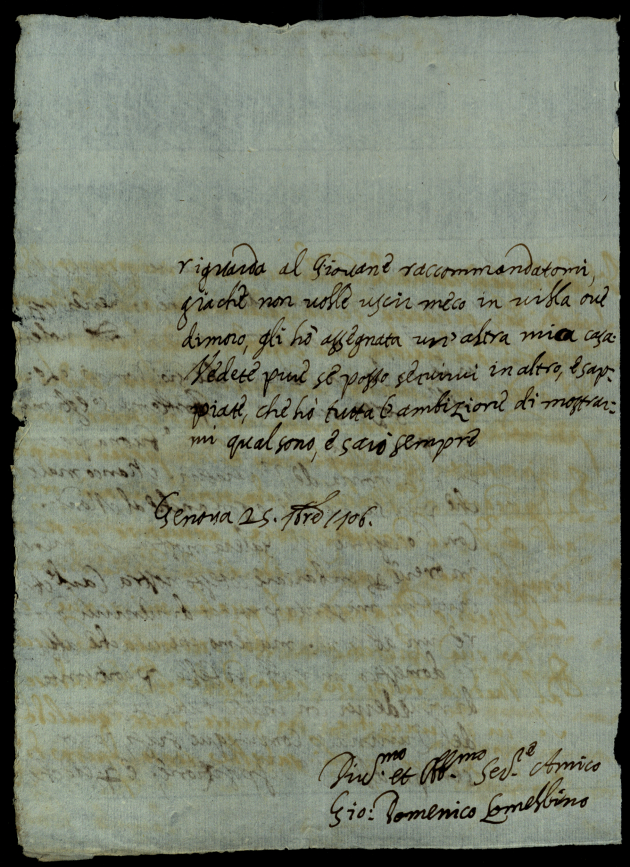 riguarda al Giovane raccommandatomi,
giachè non volle uscir meco in villa ove
dimoro, gli hò assegnata un'altra mia casa.
Vedete pure se posso servirvi in altro, è sap-
piate, che hò tutta l'ambizione di mostrar-
mi qual sono, è sarò sempre
Genova 25. 1706.
Div.mo et Obb.mo Ser.re Amico
Gio: Domenico Lomellino